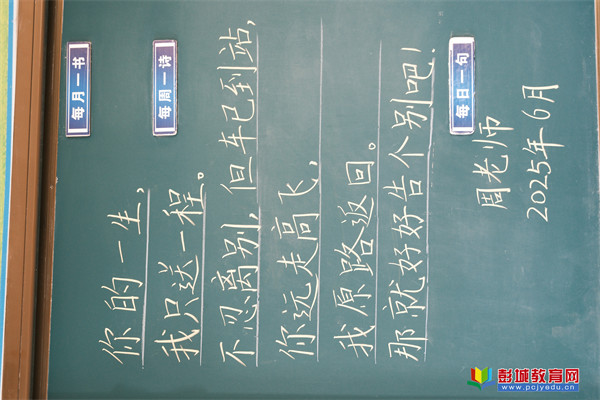 每月一书
每周一诗
每日一句
你的一生，
我只送一程。
不忍离别，但车已到站，
你远走高飞，
我原路返回。
那就好好告个别吧！
周老师
2025年6月
彭城教育网
www.pcjyedu.cn